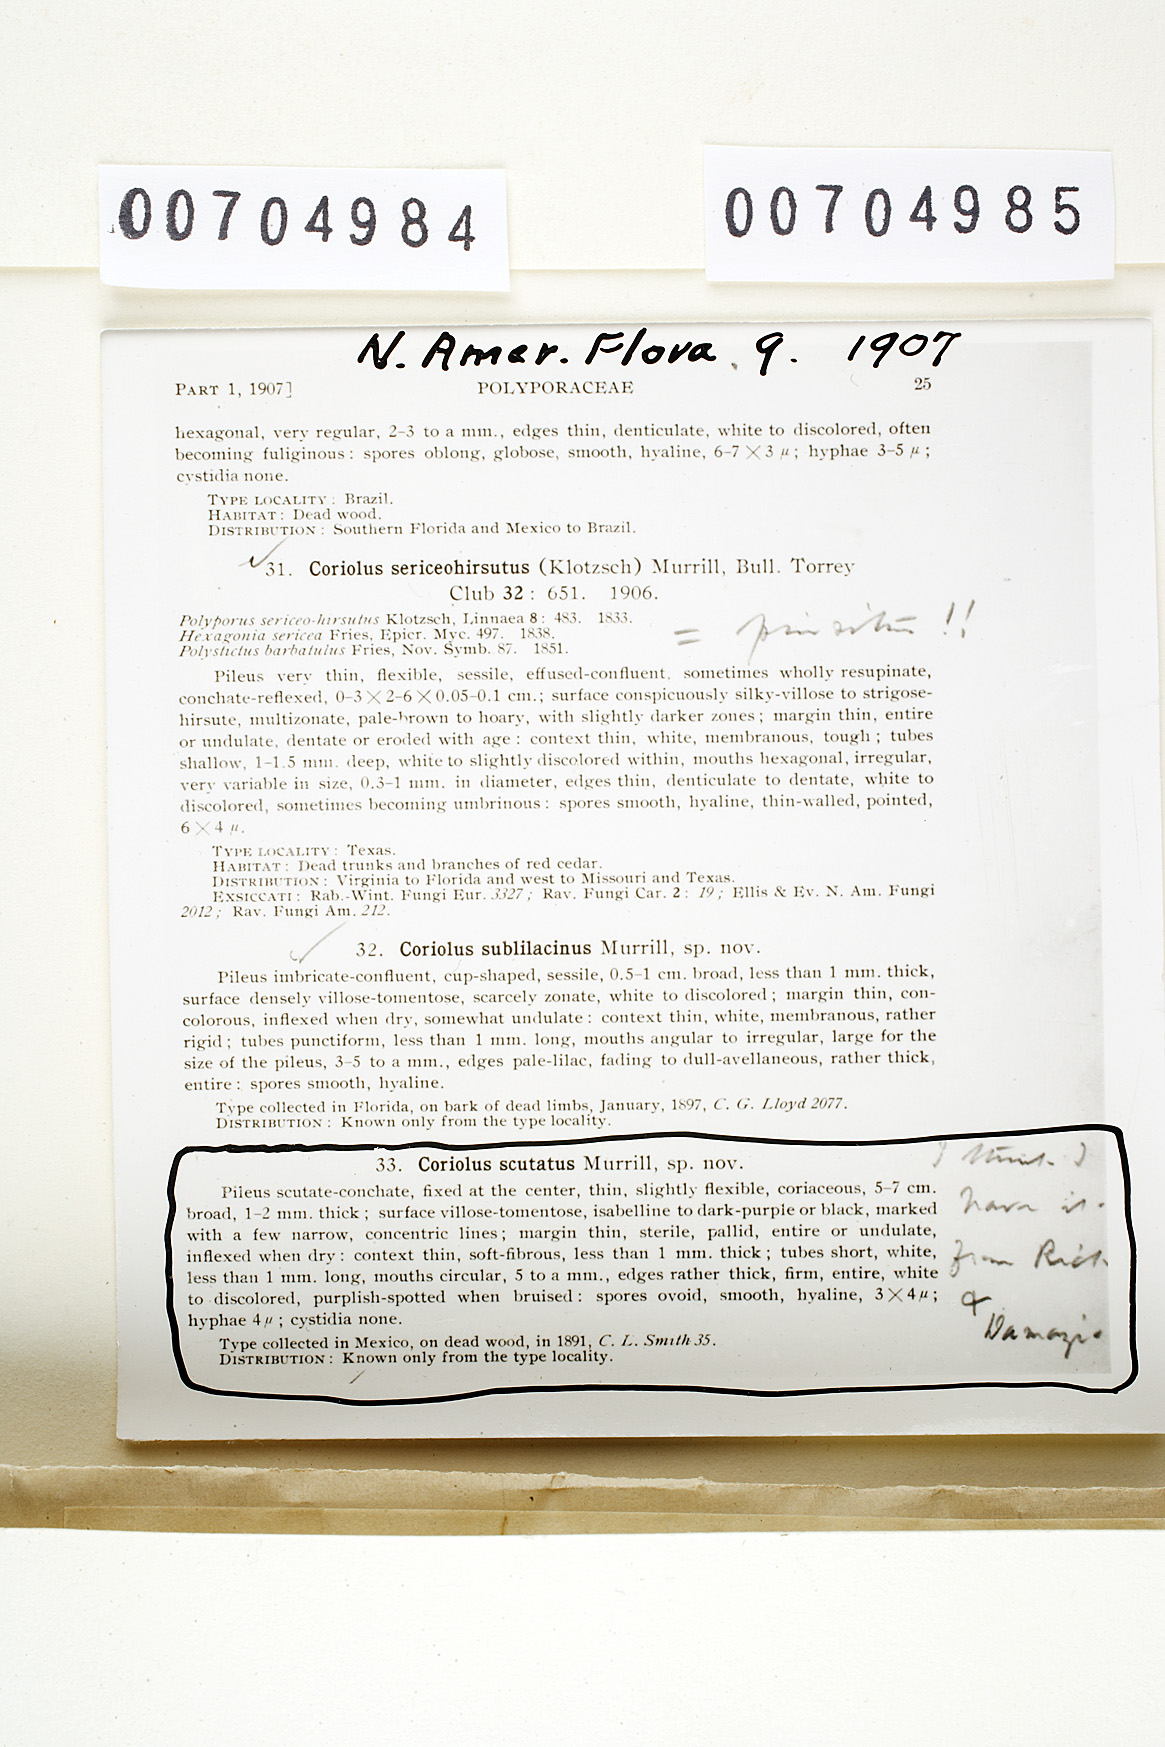 00704984
00704985
N. Amer. Flora. 9. 1907
PART 1, 1907] POLYPORACEAE 25
hexagonal, very regular, 2–3 to a mm., edges thin, denticulate, white to discolored, often
becoming fuliginous : spores oblong, globose, smooth, hyaline, 6–7 × 3 μ ; hyphae 3–5 μ ;
cystidia none.
TYPE LOCALITY : Brazil.
HABITAT : Dead wood.
DISTRIBUTION : Southern Florida and Mexico to Brazil.
31. Coriolus sericeohirsutus (Klotzsch) Murrill, Bull. Torrey
Club 32 : 651. 1906.
Polyporus sericeo-hirsutus Klotzsch, Linnaea 8 : 483. 1833.
Hexagonia sericea Fries, Epicr. Myc. 497. 1838.
Polystictus barbatulus Fries, Nov. Symb. 87. 1851.
= pinsitus !!
Pileus very thin, flexible, sessile, effused-confluent, sometimes wholly resupinate,
conchate-reflexed, 0–3 × 2–6 × 0.05–0.1 cm.; surface conspicuously silky-villose to strigose-
hirsute, multizonate, pale-brown to hoary, with slightly darker zones ; margin thin, entire
or undulate, dentate or eroded with age : context thin, white, membranous, tough ; tubes
shallow, 1–1.5 mm. deep, white to slightly discolored within, mouths hexagonal, irregular,
very variable in size, 0.3–1 mm. in diameter, edges thin, denticulate to dentate, white to
discolored, sometimes becoming umbrinous : spores smooth, hyaline, thin-walled, pointed,
6 × 4 μ.
TYPE LOCALITY : Texas.
HABITAT : Dead trunks and branches of red cedar.
DISTRIBUTION : Virginia to Florida and west to Missouri and Texas.
EXSICCATI : Rab.-Wint. Fungi Eur. 3327 ; Rav. Fungi Car. 2 : 19 ; Ellis & Ev. N. Am. Fungi
2012 ; Rav. Fungi Am. 212.
32. Coriolus sublilacinus Murrill, sp. nov.
Pileus imbricate-confluent, cup-shaped, sessile, 0.5–1 cm. broad, less than 1 mm. thick,
surface densely villose-tomentose, scarcely zonate, white to discolored ; margin thin, con-
colorous, inflexed when dry, somewhat undulate : context thin, white, membranous, rather
rigid ; tubes punctiform, less than 1 mm. long, mouths angular to irregular, large for the
size of the pileus, 3–5 to a mm., edges pale-lilac, fading to dull-avellaneous, rather thick,
entire : spores smooth, hyaline.
Type collected in Florida, on bark of dead limbs, January, 1897, C. G. Lloyd 2077.
DISTRIBUTION : Known only from the type locality.
33. Coriolus scutatus Murrill, sp. nov.
Pileus scutate-conchate, fixed at the center, thin, slightly flexible, coriaceous, 5–7 cm.
broad, 1–2 mm. thick ; surface villose-tomentose, isabelline to dark-purple or black, marked
with a few narrow, concentric lines ; margin thin, sterile, pallid, entire or undulate,
inflexed when dry : context thin, soft-fibrous, less than 1 mm. thick ; tubes short, white,
less than 1 mm. long, mouths circular, 5 to a mm., edges rather thick, firm, entire, white
to discolored, purplish-spotted when bruised : spores ovoid, smooth, hyaline, 3 × 4 μ ;
hyphae 4 μ ; cystidia none.
Type collected in Mexico, on dead wood, in 1891, C. L. Smith 35.
DISTRIBUTION : Known only from the type locality.
I think I
have it.
from Rick
&